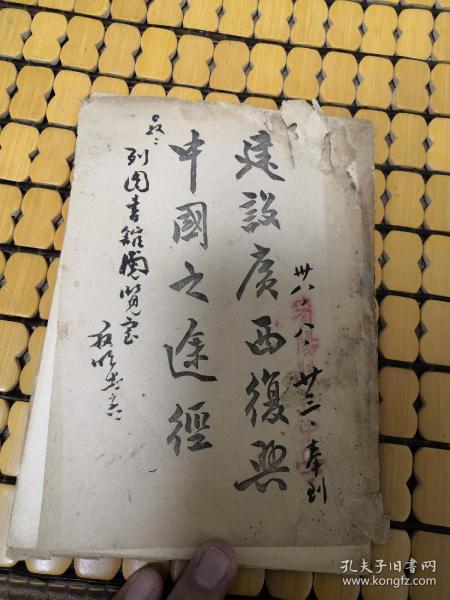 建設廣西復興
中國之途徑
卅八、八、廿三奉到
列圖書館閱覽室
孔夫子旧书网
www.kongfz.com